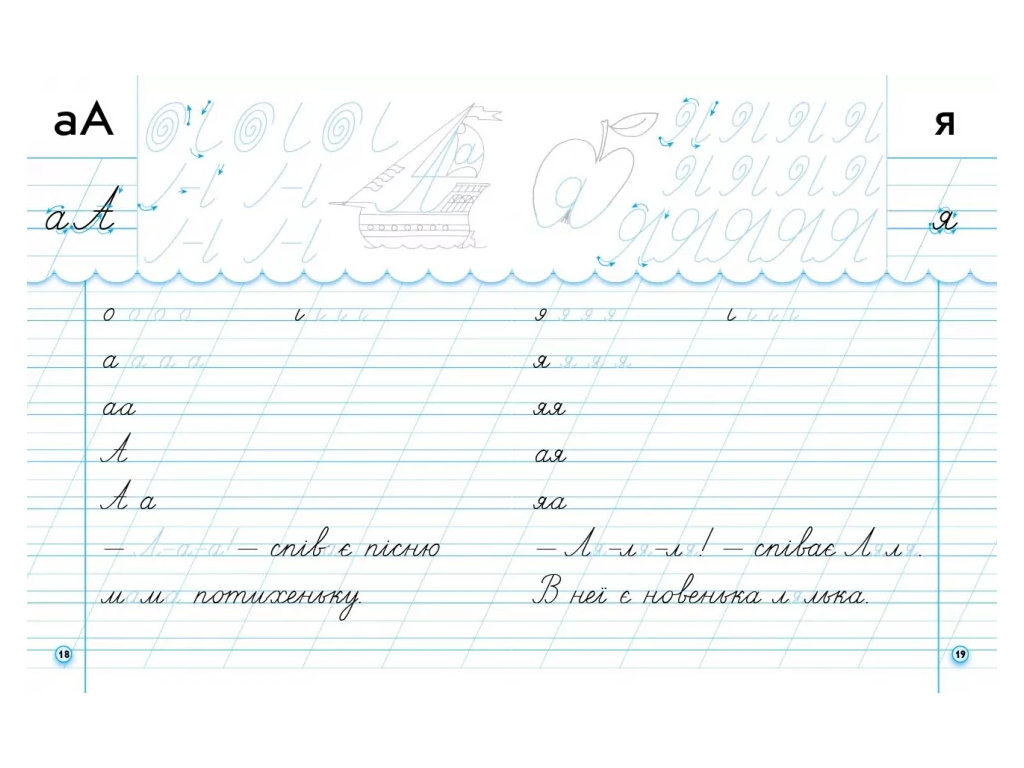 аА
а А
о о о о і і і і
а а а а
аа
А
А а
— А-а-а! — співає пісню
мама потихеньку.
18
я
я
я я я я і і і і
я я я я
яя
ая
яа
— Ля-ля-ля! — співає Ляля.
В неї є новенька лялька.
19